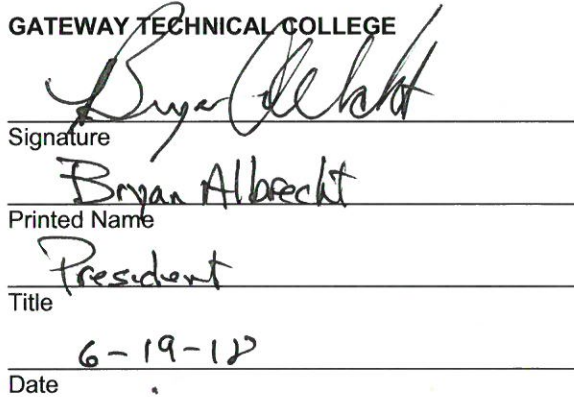 GATEWAY TECHNICAL COLLEGE
Bryan Albrecht
Signature
Bryan Albrecht
Printed Name
President
Title
6-19-18
Date